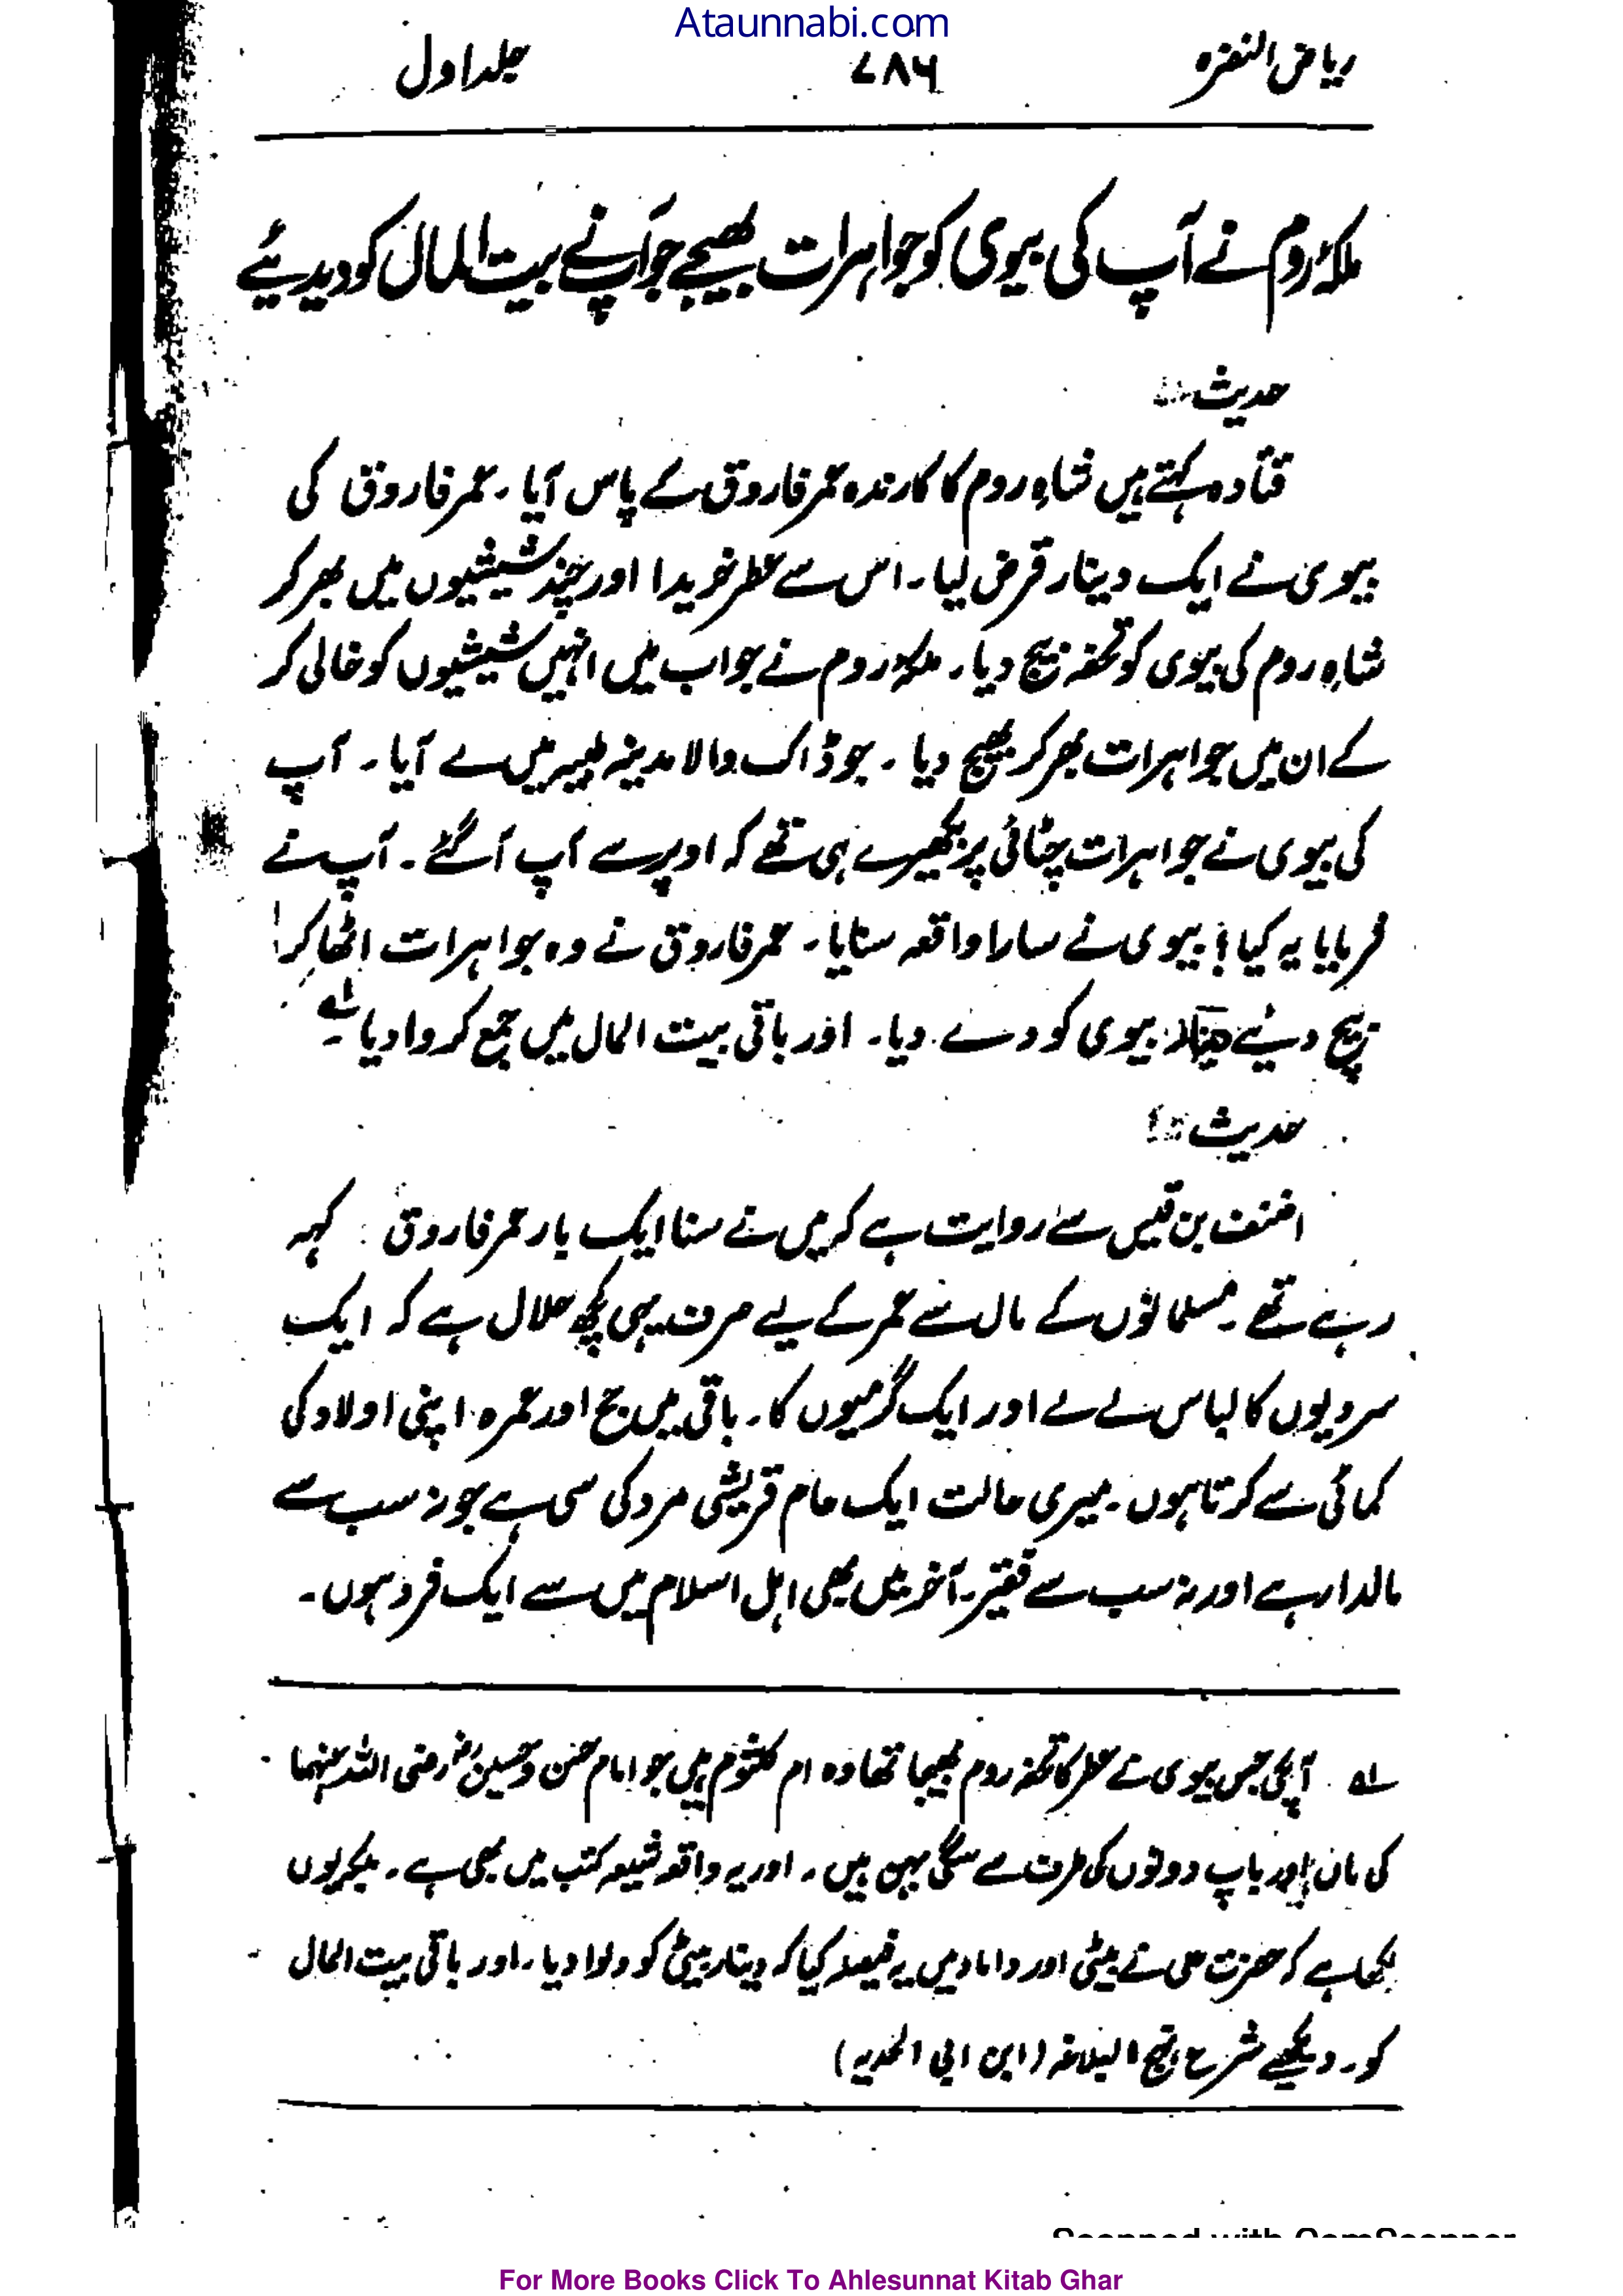 Ataunnabi.com
ریاض النضرہ ۷۸۶ جلد اول
ملکۂ روم نے آپ کی بیوی کو جواہرات بھیجے جو آپنے بیت المال کو دیدیئے
حدیث
قتادہ کہتے ہیں شاہِ روم کا کارندہ عمر فاروق کے پاس آیا۔ عمر فاروق کی
بیوی نے ایک دینار قرض لیا۔ اس سے عطر خریدا اور چند شیشیوں میں بھر کر
شاہِ روم کی بیوی کو تحفہ بھیج دیا۔ ملکۂ روم نے جواب میں انہیں شیشیوں کو خالی کر
کے ان میں جواہرات بھر کر بھیج دیا۔ جو ڈاک والا مدینہ طیبہ میں لے آیا۔ آپ
کی بیوی نے جواہرات چٹائی پر بکھیرے ہی تھے کہ اوپر سے آپ آ گئے۔ آپ نے
فرمایا یہ کیا؟ بیوی نے سارا واقعہ سنایا۔ عمر فاروق نے وہ جواہرات اٹھا کر
بیچ دیئے دینار بیوی کو دے دیا۔ اور باقی بیت المال میں جمع کروا دیا لہ
حدیث
احنف بن قیس سے روایت ہے کہ میں نے سنا ایک بار عمر فاروق کہہ
رہے تھے۔ مسلمانوں کے مال سے عمر کے لیے صرف یہی کچھ حلال ہے کہ ایک
سردیوں کا لباس لے لے اور ایک گرمیوں کا۔ باقی میں حج اور عمرہ اپنی اولاد کی
کمائی سے کرتا ہوں۔ میری حالت ایک عام قریشی مرد کی سی ہے جو نہ سب سے
مالدار ہے اور نہ سب سے فقیر۔ آخر میں بھی اہل اسلام میں سے ایک فرد ہوں۔
لہ آپکی جس بیوی نے عطر کا تحفہ روم بھیجا تھا وہ ام کلثوم ہیں جو امام حسن و حسین رضی اللہ عنہما
کی ماں اور باپ دونوں کی طرف سے سگی بہن ہیں۔ اور یہ واقعہ شیعہ کتب میں بھی ہے۔ بلکہ یوں
لکھا ہے کہ حضرت علی نے بیٹی اور داماد میں یہ فیصلہ کیا کہ دینار بیٹی کو دلوا دیا۔ اور باقی بیت المال
کو۔ دیکھیے شرح نہج البلاغہ (ابن ابی الحدید)
Scanned with CamScanner
For More Books Click To Ahlesunnat Kitab Ghar